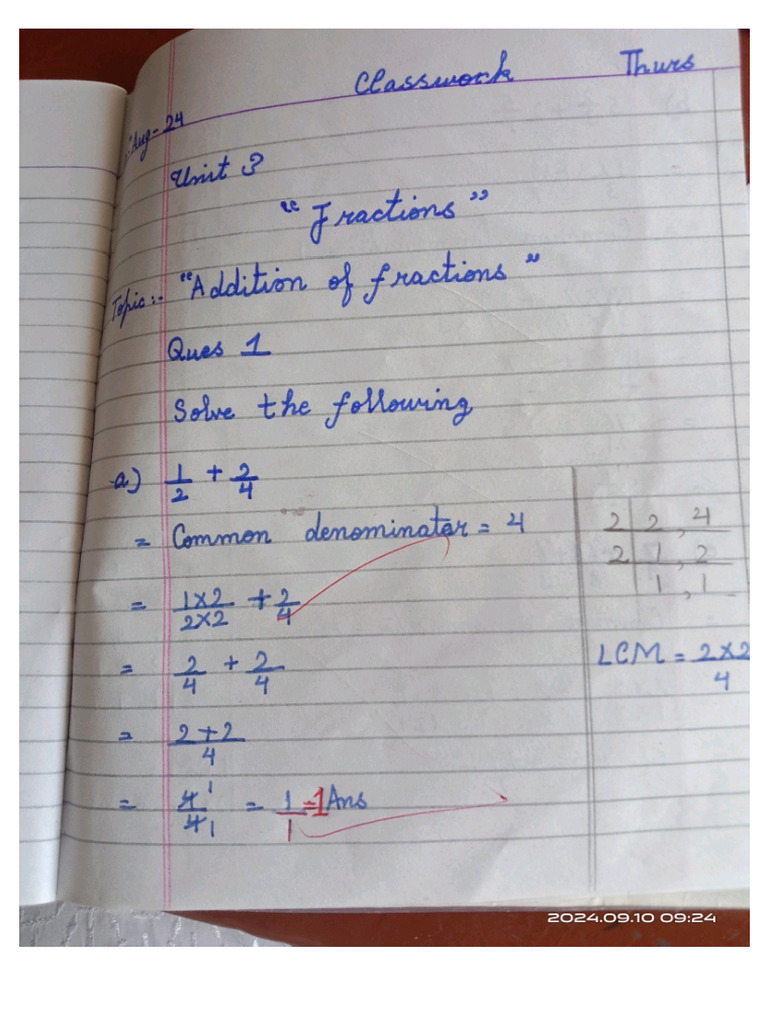 Classwork Thurs
Aug-24
Unit 3
"Fractions"
Topic:- "Addition of fractions"
Ques 1
Solve the following
a) 1/2 + 2/4
= Common denominator = 4
2 | 2, 4
2 | 1, 2
1, 1
= 1×2/2×2 + 2/4
= 2/4 + 2/4
LCM = 2×2
4
= 2+2/4
= 4/4 1 1 = 1/1 = 1 Ans
2024.09.10 09:24